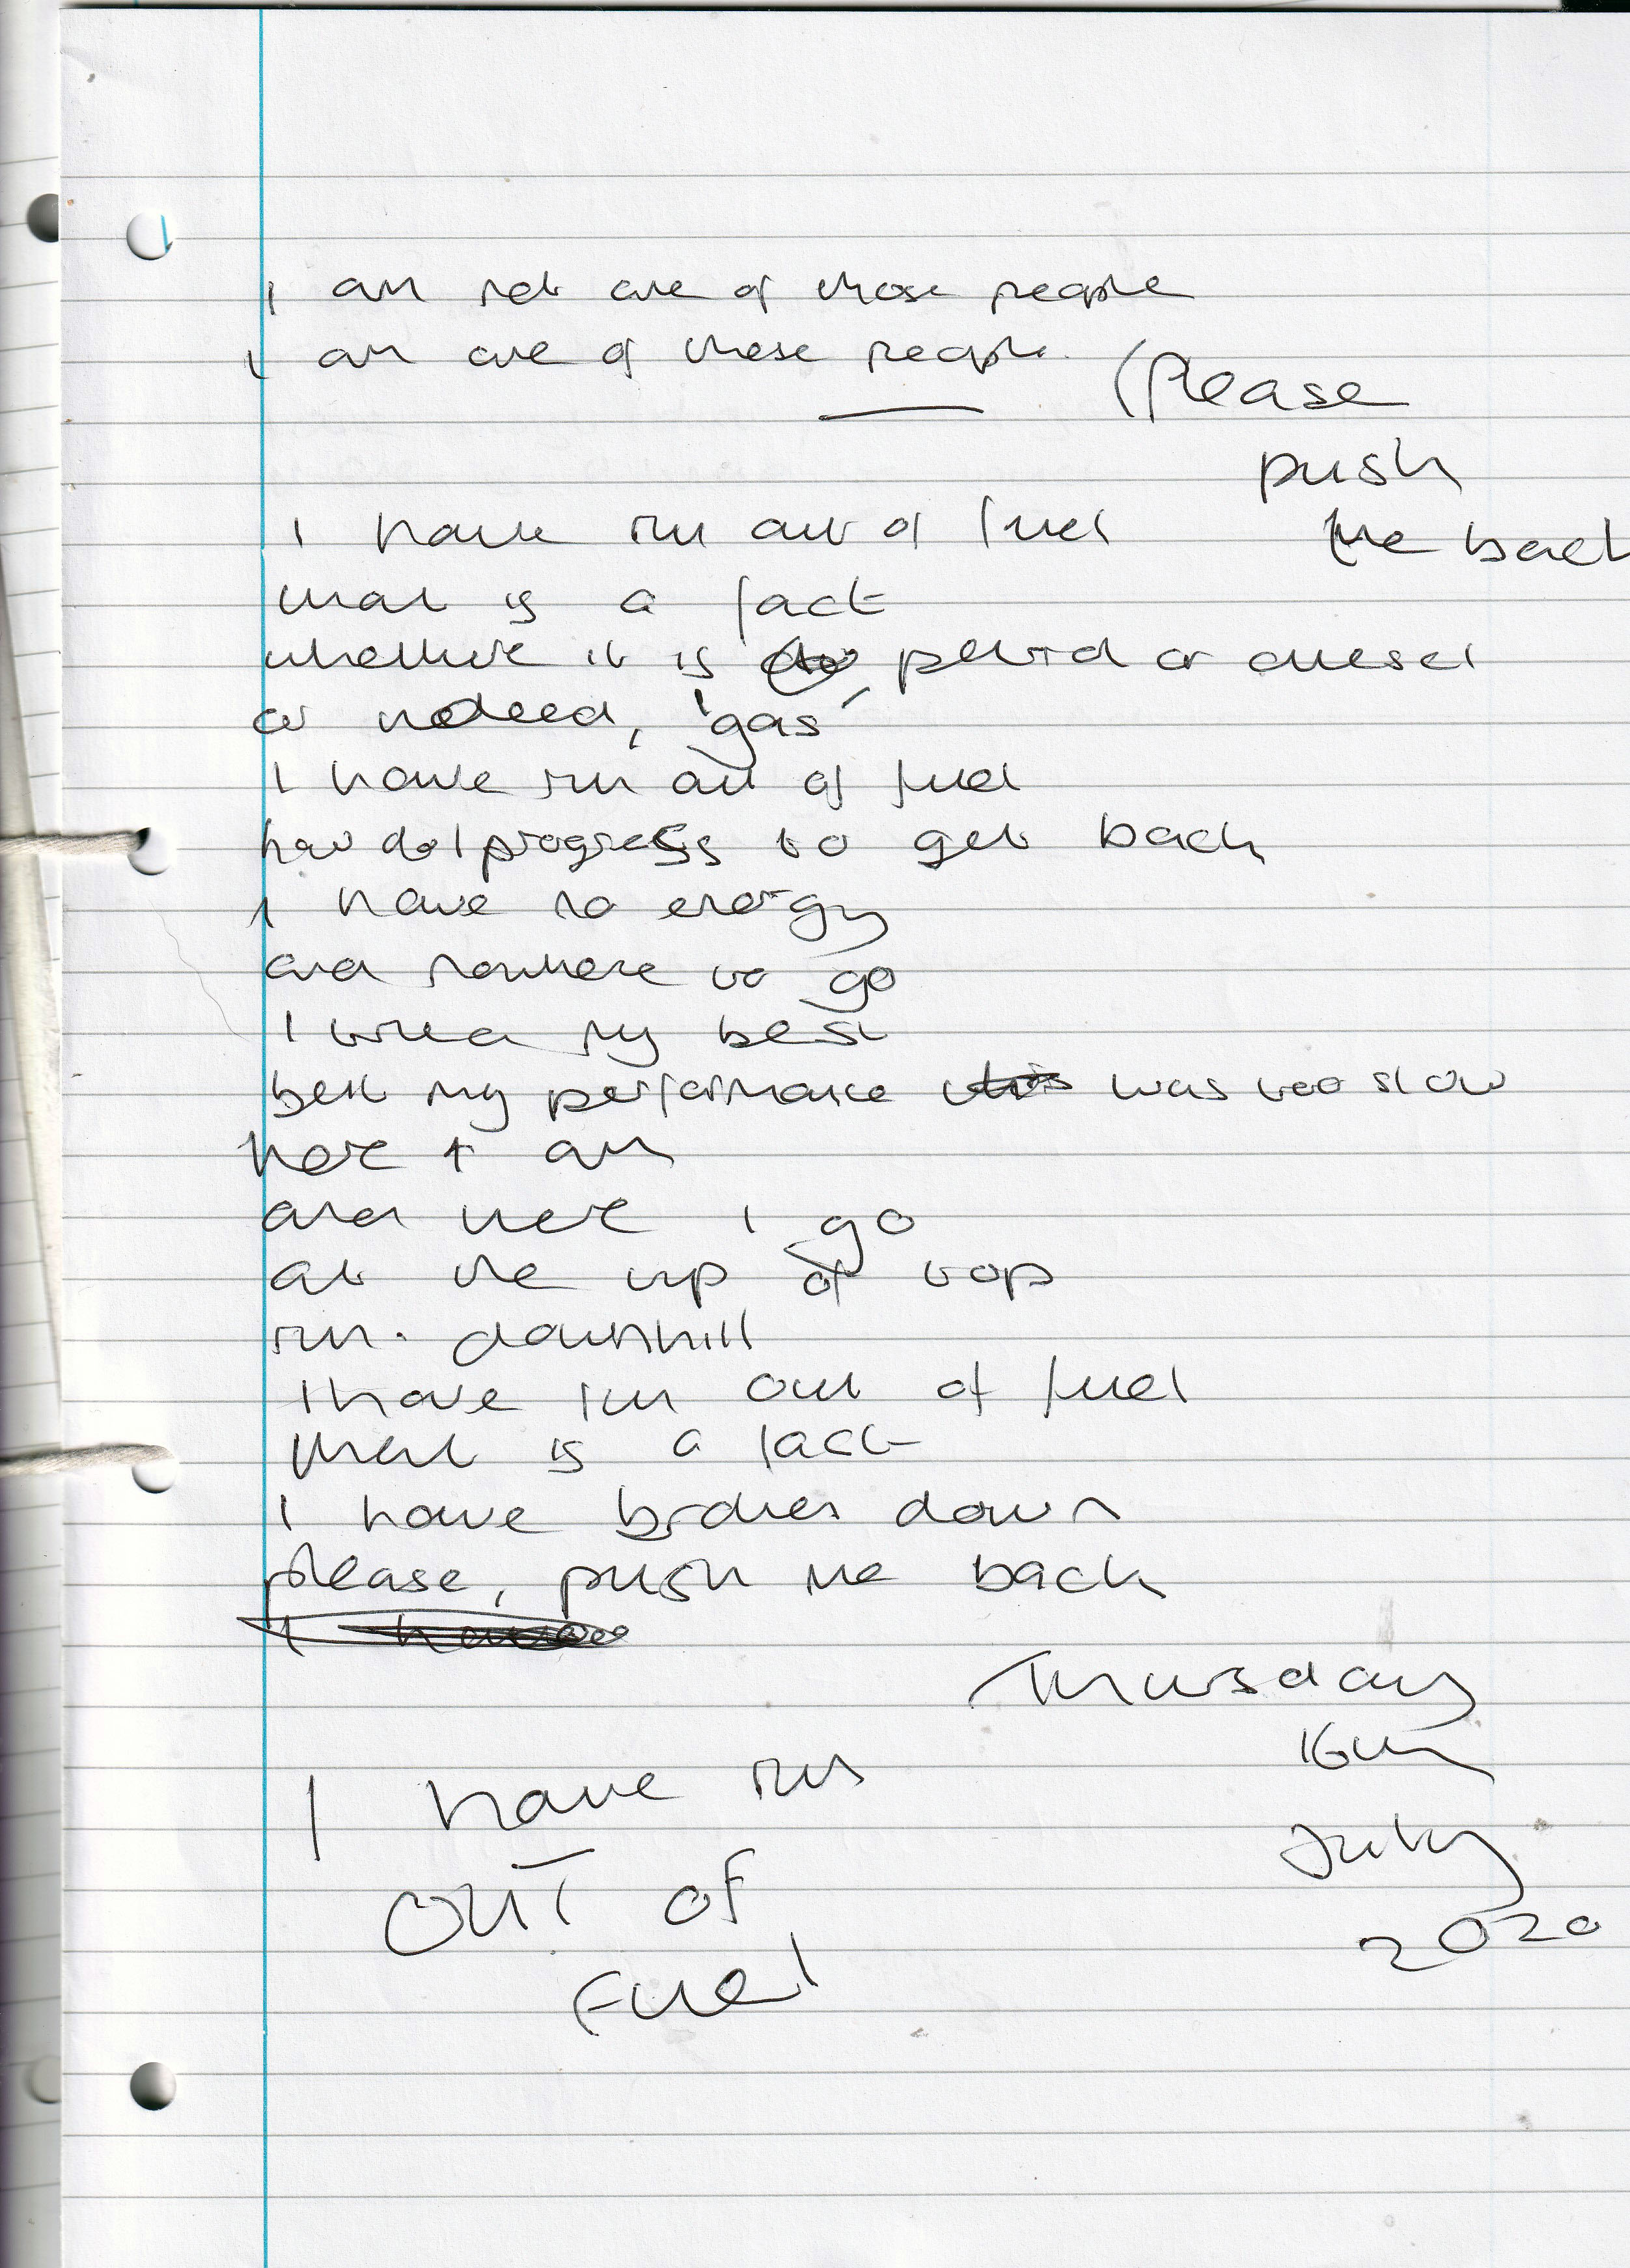 I am not one of those people
I am one of these people.
(Please
push
me back
I have run out of fuel
that is a fact
whether it is petrol or diesel
or indeed, 'gas'
I have run out of fuel
how do I progress to get back
I have no energy
and nowhere to go
I tried my best
but my performance was too slow
here I am
and here I go
at the up of top
run. downhill
I have run out of fuel
that is a fact
I have broken down
please, push me back
Thursday
16th
July
2020
I have run
OUT OF
FUEl